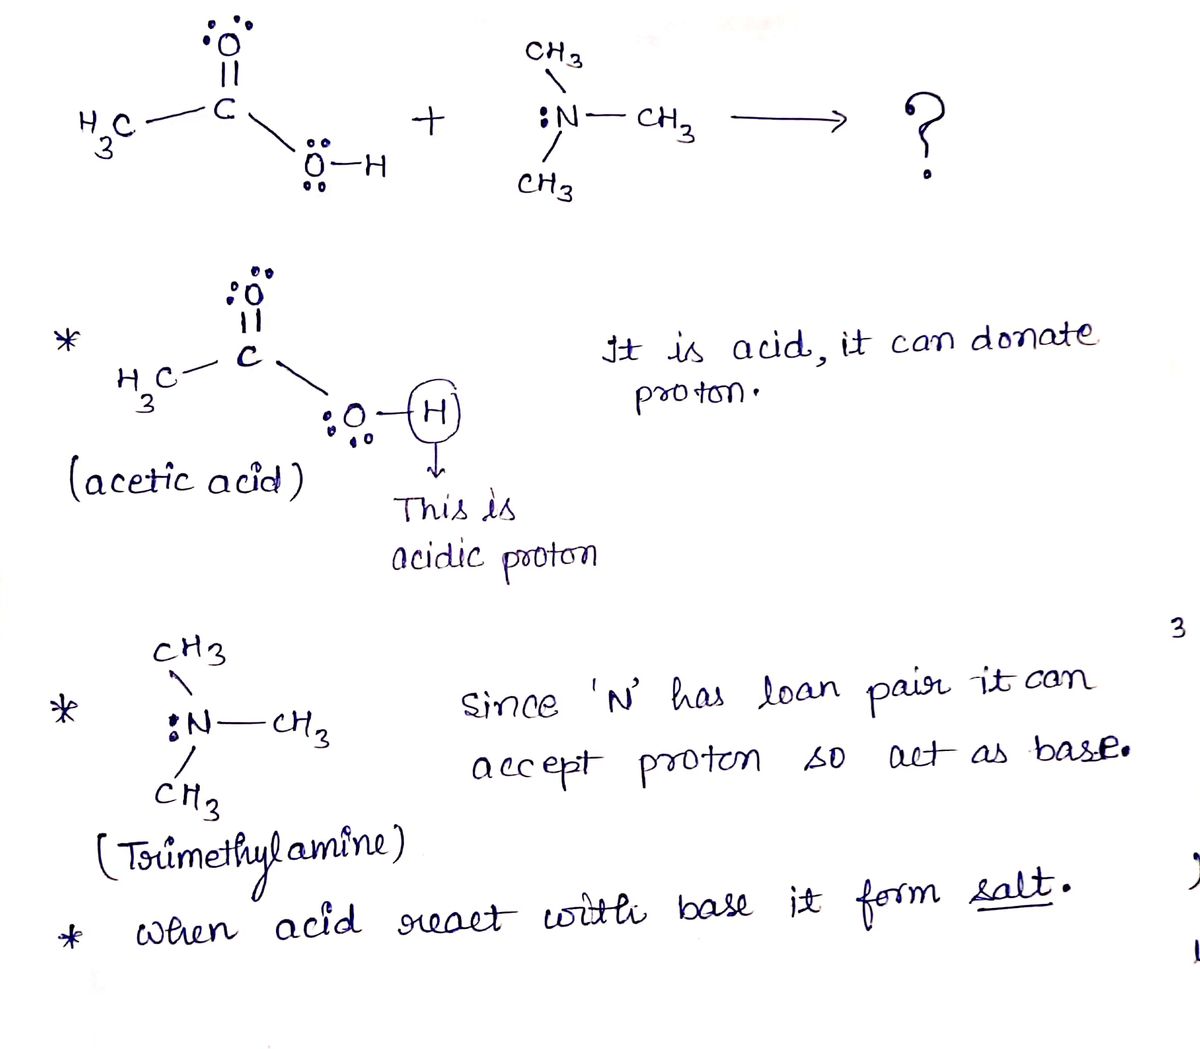 :Ö
||
H3C — C \ Ö — H + :N — CH3 → ?
CH3
CH3
* :Ö
||
H3C — C \ :O — H
It is acid, it can donate
proton.
(acetic acid)
This is
acidic proton
CH3
* :N — CH3
CH3
3
since 'N' has loan pair it can
accept proton so act as base.
(Trimethylamine)
* when acid react with base it form salt.